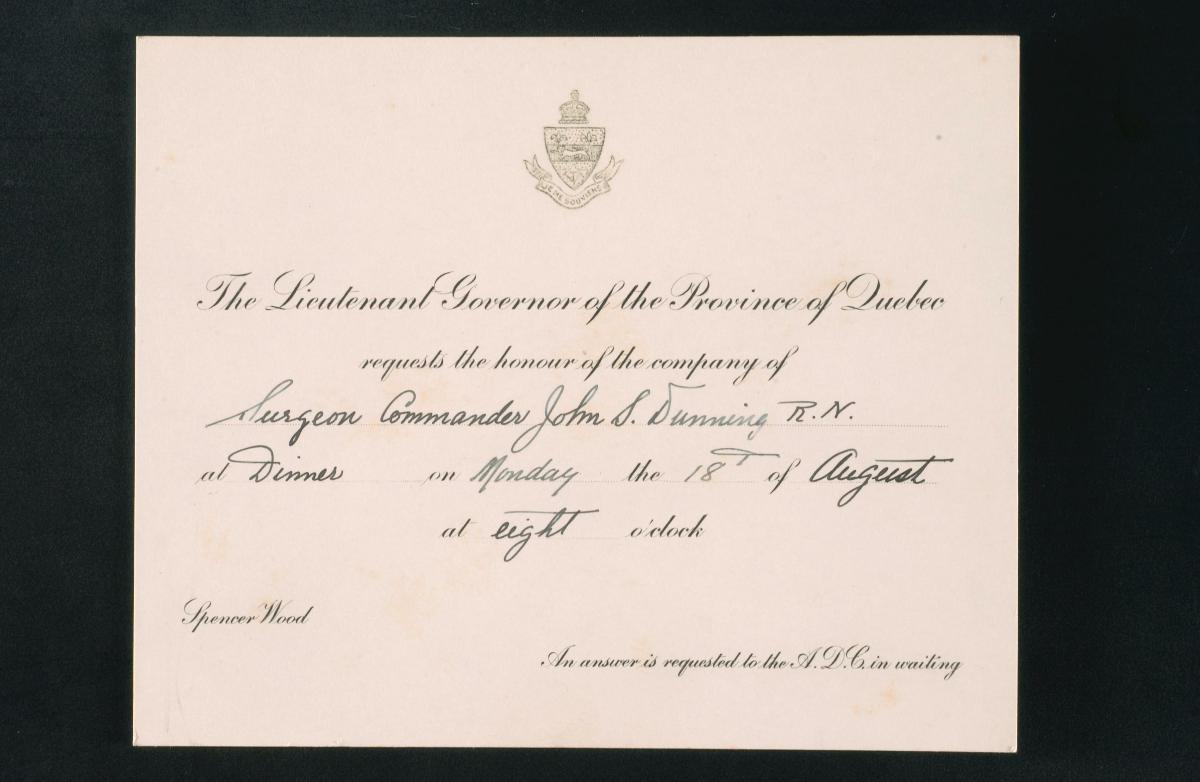 JE ME SOUVIENS
The Lieutenant Governor of the Province of Quebec
requests the honour of the company of
Surgeon Commander John S. Dunning R.N.
at Dinner on Monday the 18T of August
at eight o'clock
Spencer Wood
An answer is requested to the A.D.C. in waiting